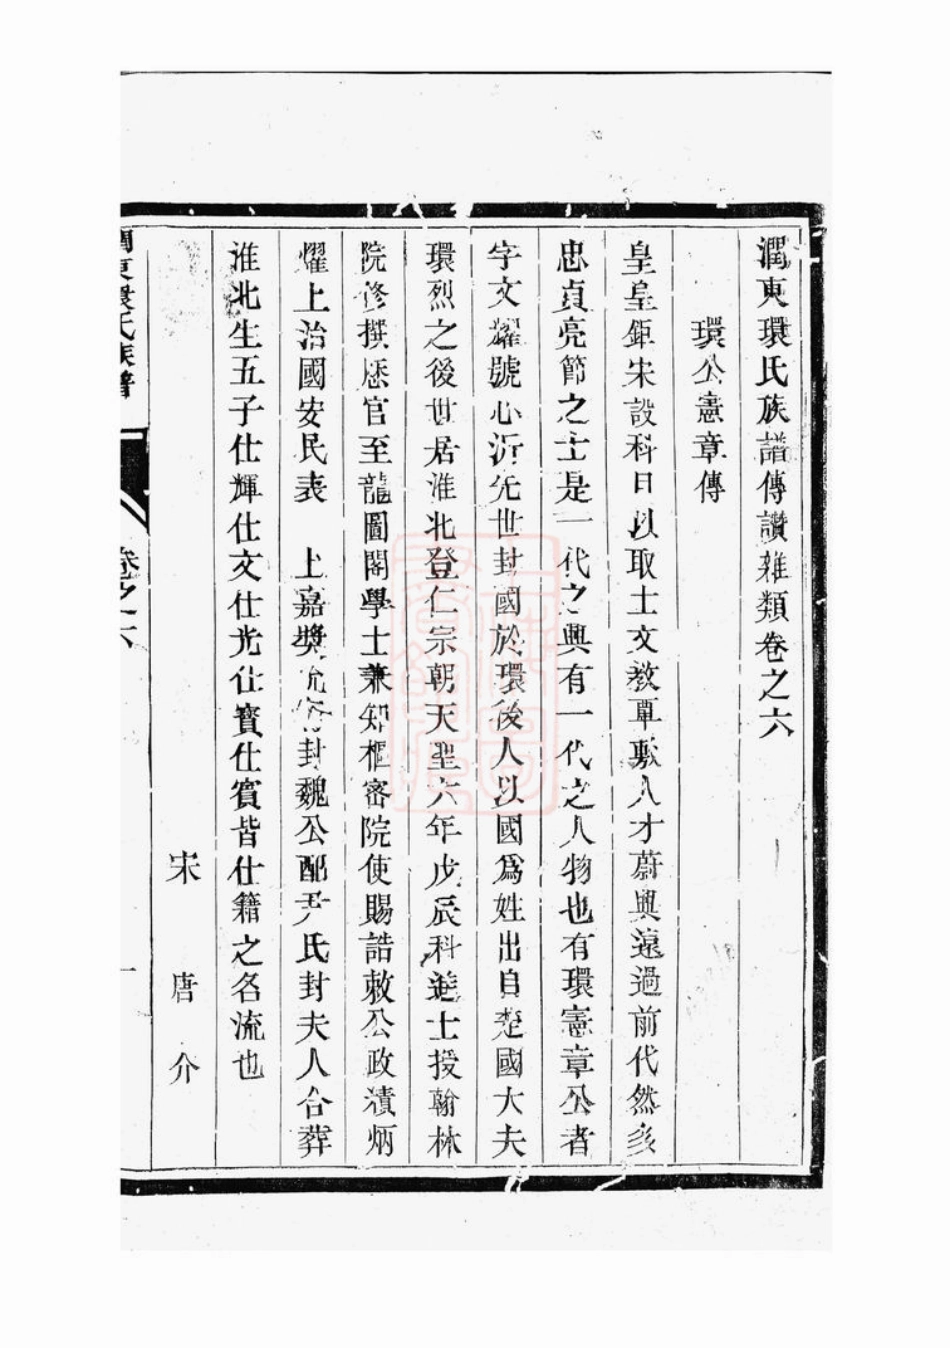 潤東環氏族譜傳讚雜類卷之六
環公憲章傳
皇皇鉅宋設科目以取士文教覃敷人才蔚興遠過前代然多
忠貞亮節之士是一代之興有一代之人物也有環憲章公者
字文耀號心沂先世封國於環後人以國為姓出自楚國大夫
環烈之後世居淮北登仁宗朝天聖六年戊辰科進士授翰林
院修撰歷官至龍圖閣學士兼知樞密院使賜誥敕公政績炳
耀上治國安民表　上嘉獎 封魏公配尹氏封夫人合葬
淮北生五子仕輝仕文仕光仕寶仕賓皆仕籍之名流也
宋　唐　介
潤東環氏族譜
卷之六
一